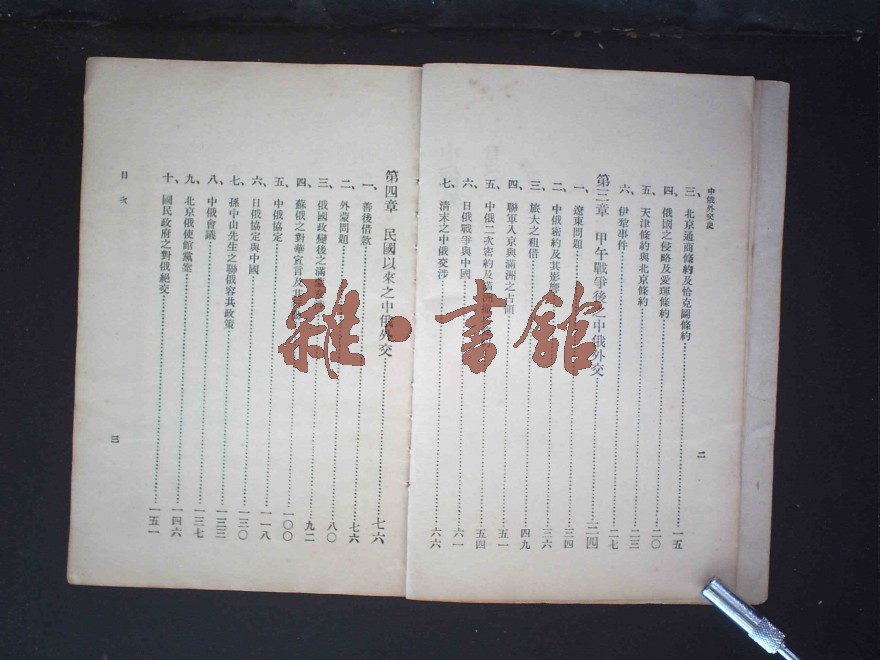 中俄外交史
二
三、北京通商條約及恰克圖條約……一五
四、俄國之侵略及愛琿條約……二〇
五、天津條約與北京條約……二三
六、伊犂事件……二七
第三章 甲午戰爭後之中俄外交……三四
一、遼東問題……三四
二、中俄密約及其影響……三六
三、旅大之租借……四九
四、聯軍入京與滿洲之占領……五一
五、中俄二次密約及……五四
六、日俄戰爭與中國……六一
七、清末之中俄交涉……六六
第四章 民國以來之中俄外交……七六
一、善後借款……七六
二、外蒙問題……八〇
三、俄國政變後之滿蒙……九二
四、蘇俄之對華宣言及其……一〇〇
五、中俄協定……一一八
六、日俄協定與中國……一三〇
七、孫中山先生之聯俄容共政策……一三三
八、中俄會議……一三七
九、北京俄使館黨案……一四六
十、國民政府之對俄絕交……一五一
目次
三
雜·書館